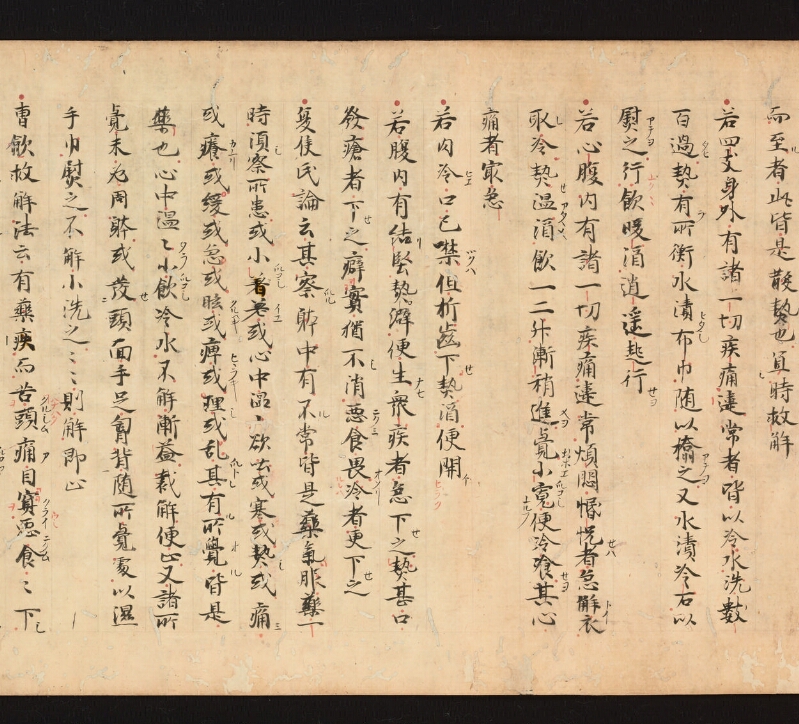 而至者此皆是散勢也宜時救解
若四支身外有諸一切疾痛違常者皆以冷水洗數
百過勢有所衝水漬布巾随以搭之又水漬冷石以
熨之行飲暖酒逍遥起行
若心腹内有諸一切疾痛違常煩悶惛怳者急解衣
取冷勢温酒飲一二升漸稍進覺小寛便冷飡其心
痛者最急
若内冷口已噤但折齒下勢酒便開
若腹内有結堅勢澼便生衆疾者急下之勢甚口
發瘡者下之癖實猶不消惡食畏冷者更下之
夏侯氏論云其察躰中有不常皆是藥氣服藥一
時須察所患或小着惡或心中温〻欲去或寒或勢或痛
或癢或緩或急或眩或痺或理或乱其有所覺皆是
藥也心中温〻小飲冷水不解漸益裁解便止又諸所
覺未必周躰或發頭面手足胷背随所覺處以濕
手巾熨之不解小洗之〻〻則解即止
曺歙救解法云有藥疾而苦頭痛目冥惡食〻下